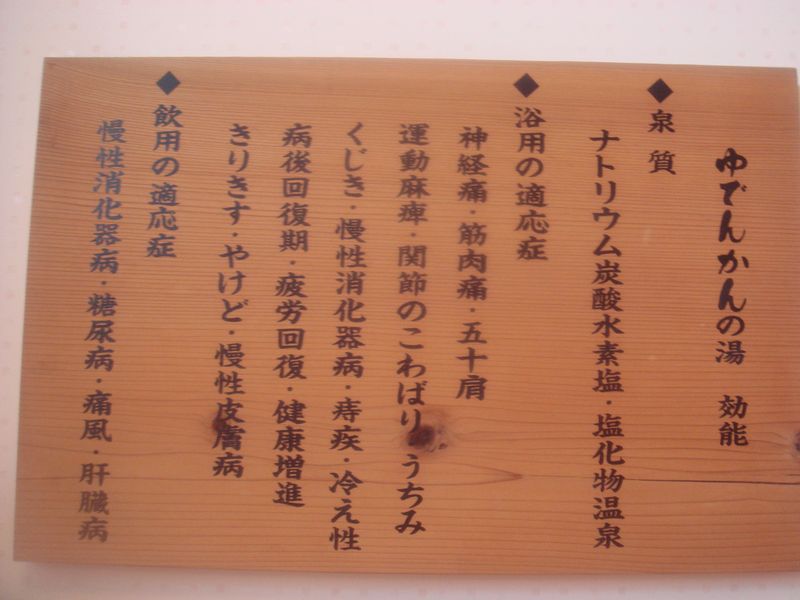 ゆでんかんの湯 効能
◆泉質
ナトリウム炭酸水素塩・塩化物温泉
◆浴用の適応症
神経痛・筋肉痛・五十肩
運動麻痺・関節のこわばり・うちみ
くじき・慢性消化器病・痔疾・冷え性
病後回復期・疲労回復・健康増進
きりきす・やけど・慢性皮膚病
◆飲用の適応症
慢性消化器病・糖尿病・痛風・肝臓病